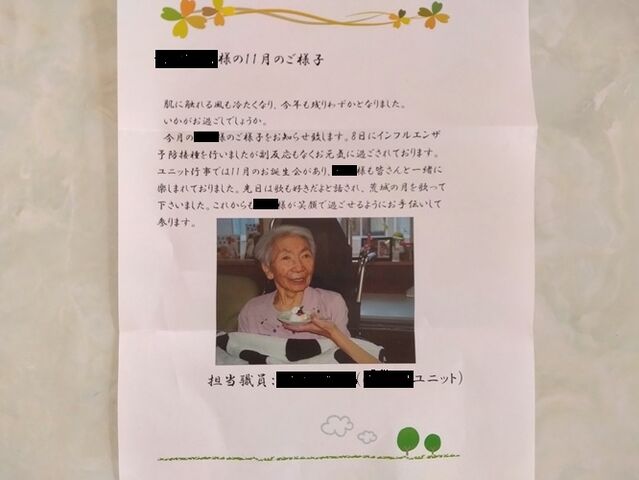 様の11月のご様子
肌に触れる風も冷たくなり、今年も残りわずかとなりました。
いかがお過ごしでしょうか。
今月の様のご様子をお知らせ致します。8日にインフルエンザ
予防接種を行いましたが副反応もなくお元気に過ごされております。
ユニット行事では11月のお誕生会があり、様も皆さんと一緒に
楽しまれておりました。先日は歌も好きだよと話され、荒城の月を歌って
下さいました。これからも様が笑顔で過ごせるようにお手伝いして
参ります。
担当職員:(ユニット)